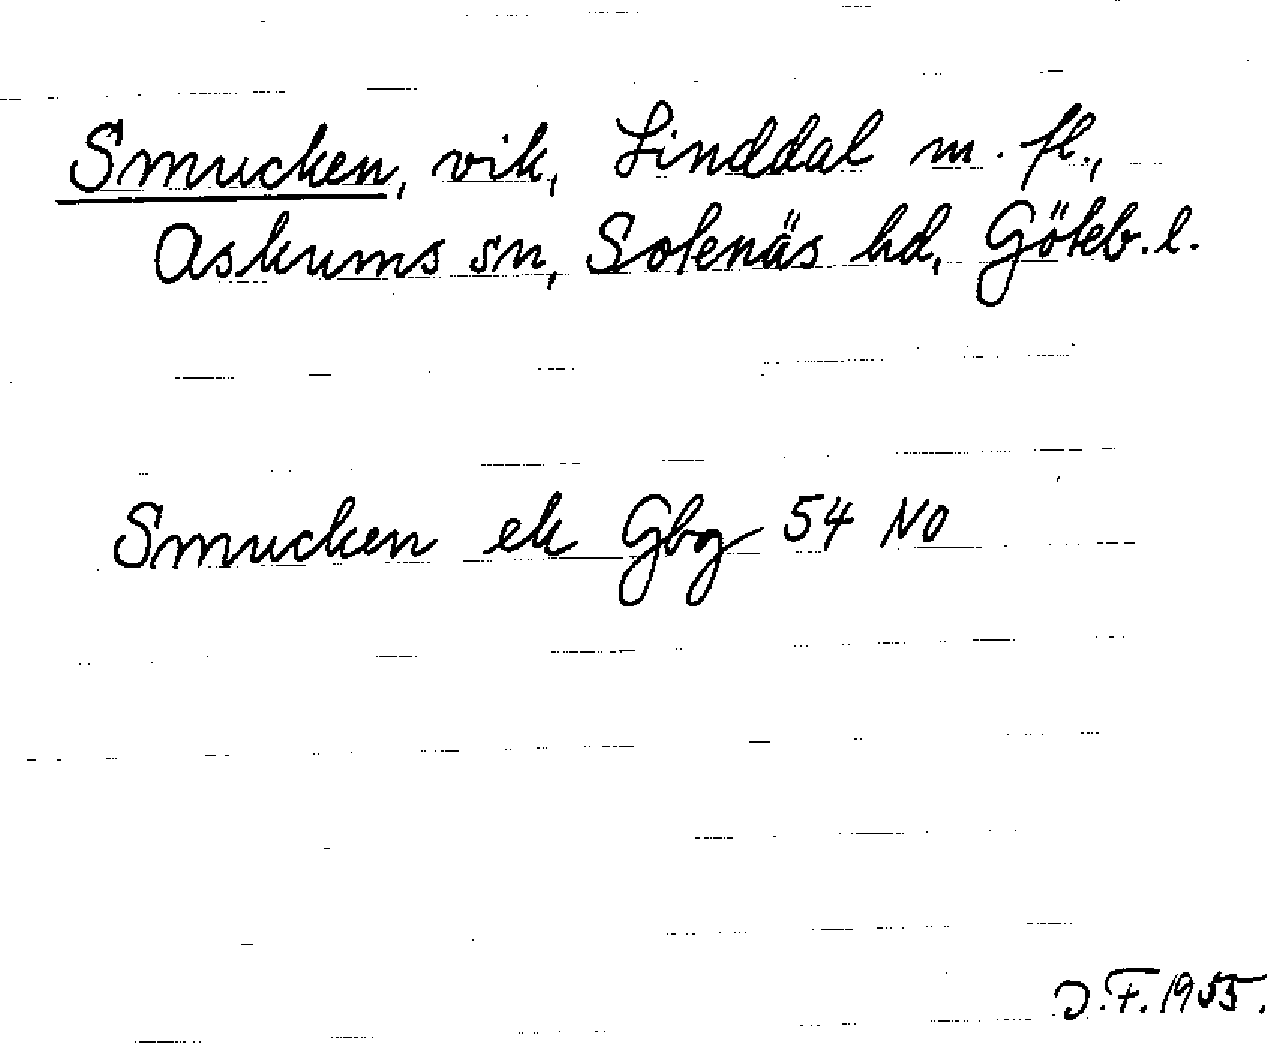 Smucken, vik, Linddal m. fl.,
Askums sn, Sotenäs hd, Göteb. l.
Smucken ek Gbg 54 NO
J.F. 1955.